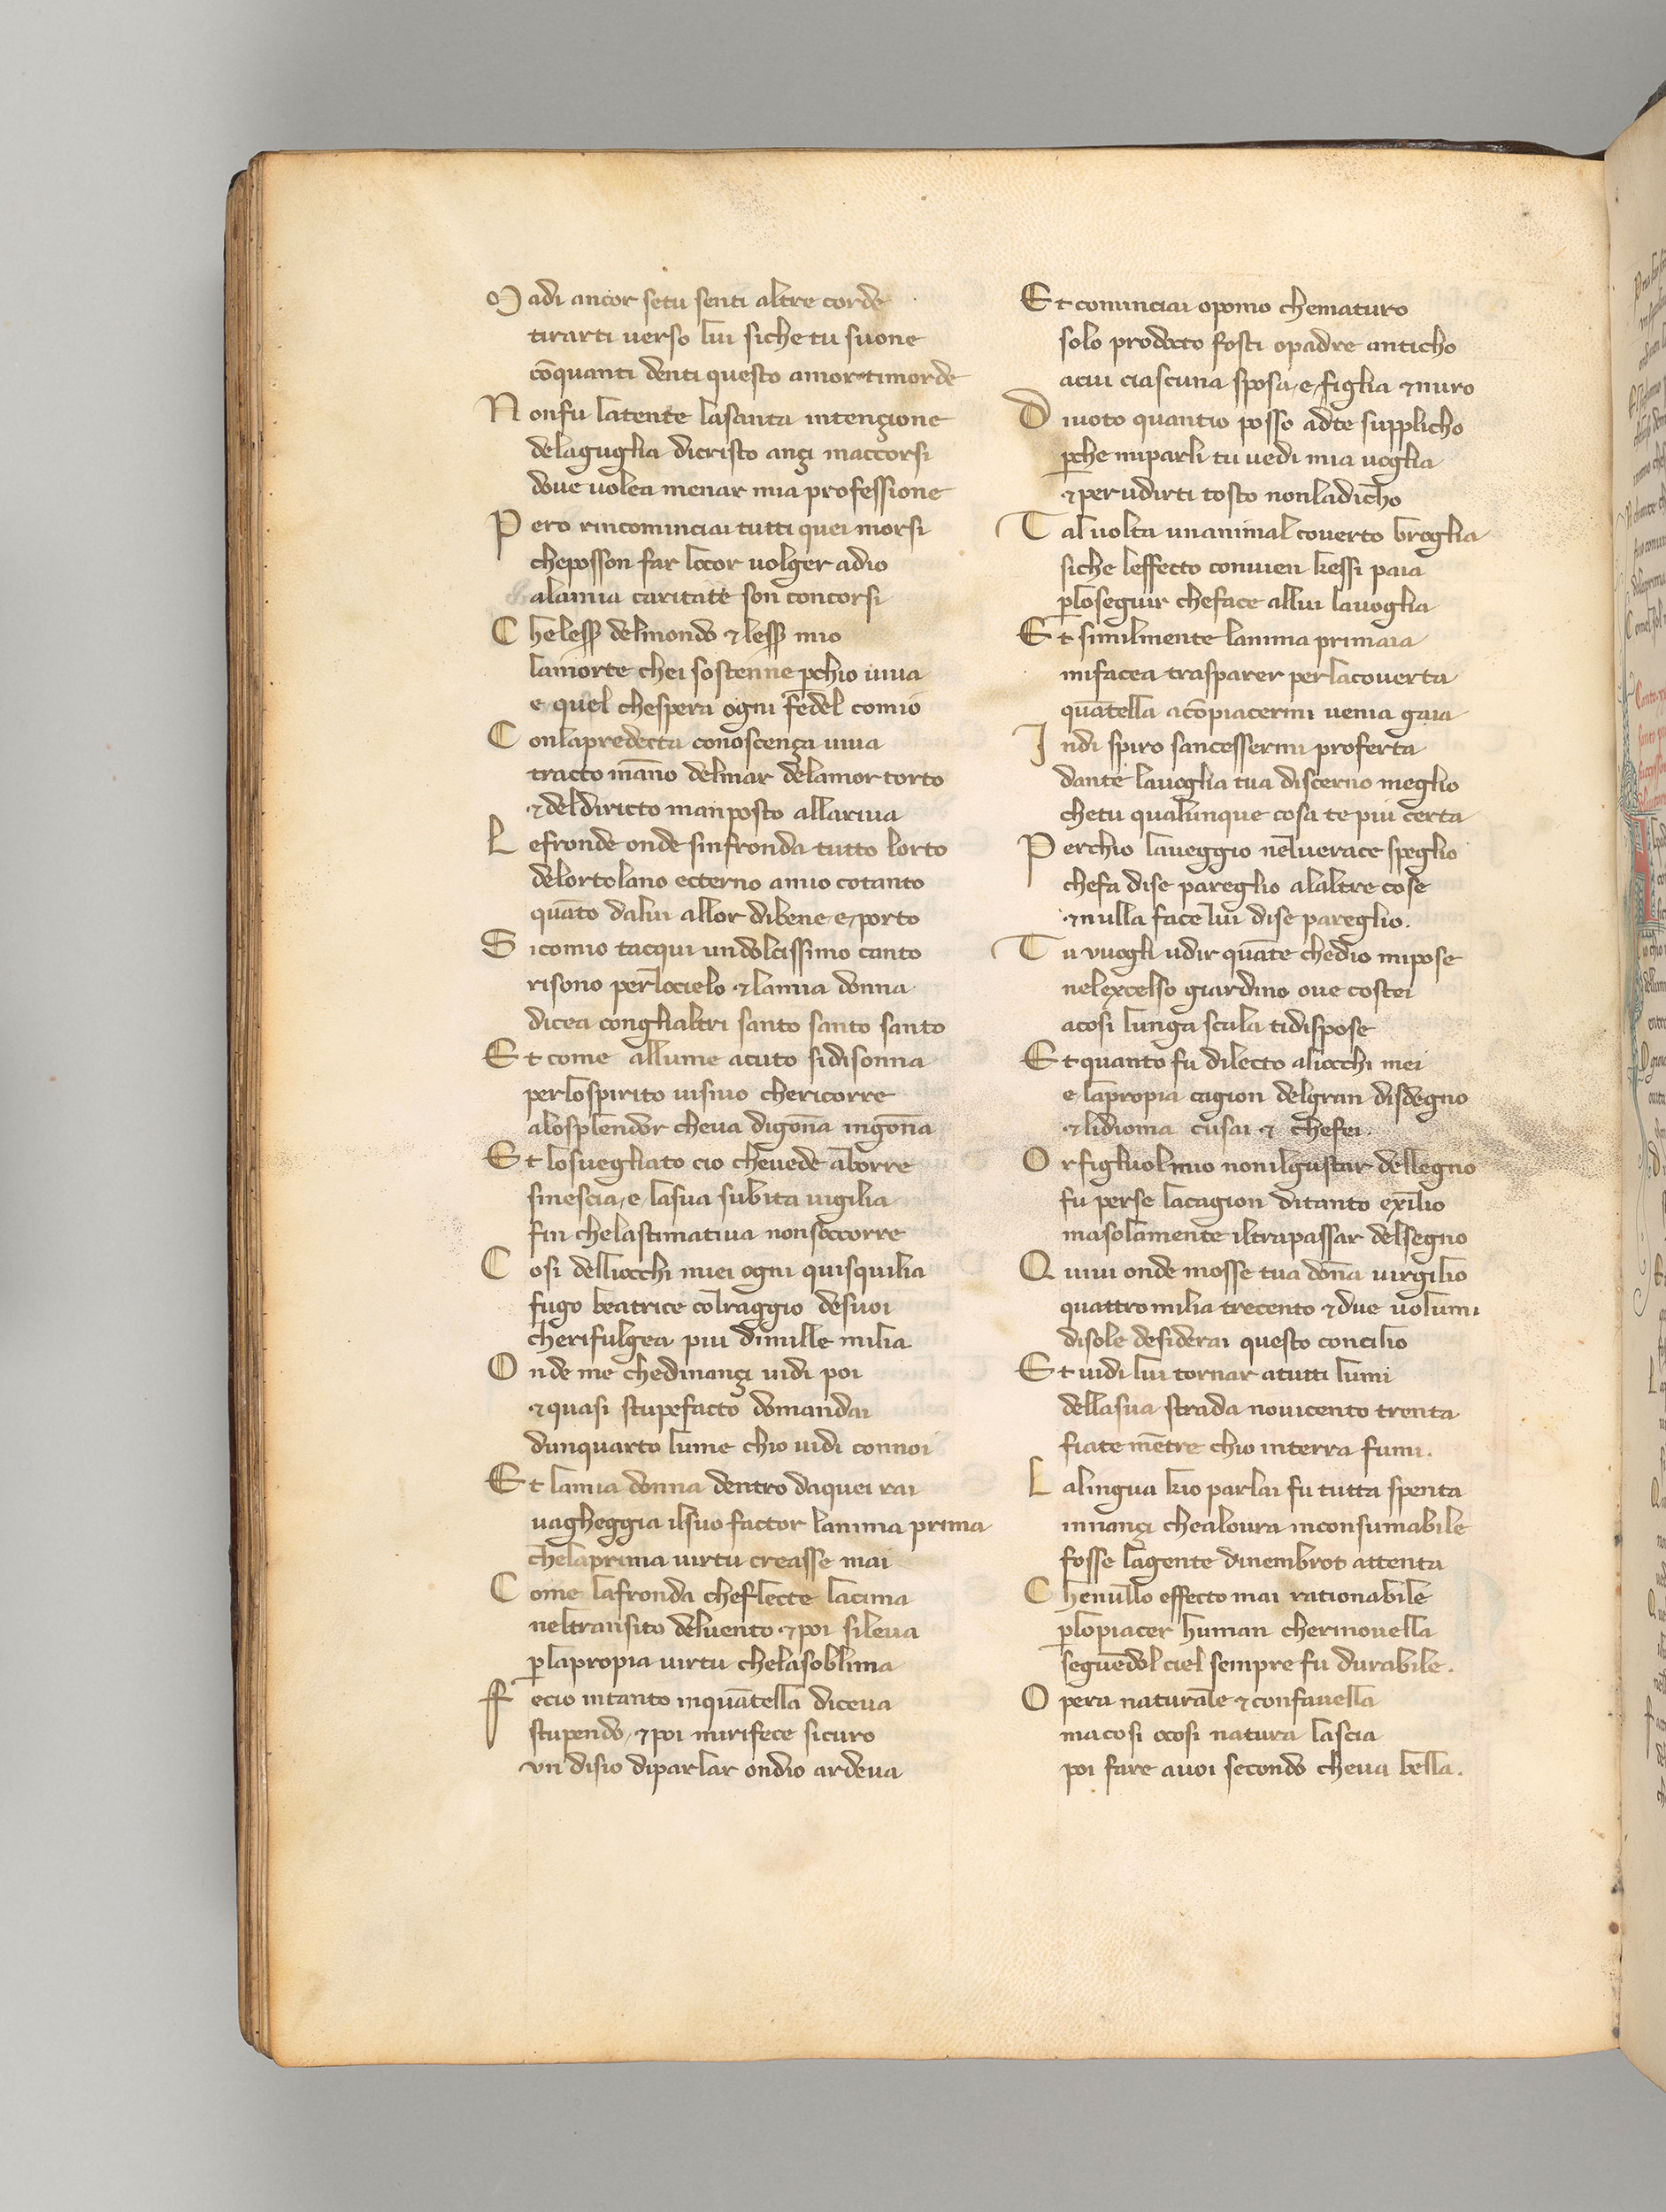 M adi ancor setu senti altre corde
tirarti uerso lui siche tu suone
cōquanti denti questo amor timorde
N onfu latente lasanta intençione
delaguglia dicristo ançi maccorsi
doue uolea menar mia professione
P ero rincominciai tutti quei morsi
cheposson far locor uolger adio
alamia caritate son concorsi
C helesser delmondo ⁊ lesser mio
lamorte chei sostenne ꝑchio uiua
e quel chespera ogni fedel comio
C onlapredecta conoscença uiua
tracto māno delmar delamor torto
⁊ deldiricto man posto allariua
L efronde onde sinfronda tutto lorto
delortolano ecterno amio cotanto
quāto dalui allor dibene e porto
S icomio tacqui un dolcissimo canto
risono perlocielo ⁊ lamia donna
dicea conglialtri santo santo santo
E t come allume acuto sidisonna
perlospirito uisiuo chericorre
alosplendor cheua digōna ingōna
E t losuegliato cio cheuede aborre
sinescia e lasua subita uigilia
fin chelastimatiua nonsoccorre
C osi delliocchi miei ogni quisquilia
fugo beatrice colraggio desuoi
cherifulgea piu dimille milia
O nde me chedinançi uidi poi
⁊ quasi stupefacto domandai
dunquarto lume chio uidi connoi
E t lamia donna dentro daquei rai
uagheggia ilsuo factor lanima prima
chelaprima uirtu creasse mai
C ome lafronda cheflecte lacima
neltransito deluento ⁊ poi sileua
ꝑlapropia uirtu chelasoblima
F ecio intanto inquātella diceua
stupendo ⁊ poi mirifece sicuro
un disio diparlar ondio ardeua
E t cominciai opomo chematuro
solo prodocto fosti opadre anticho
acui ciascuna sposa e figlia ⁊ nuro
D iuoto quantio posso adte supplicho
ꝑche miparli tu uedi mia uoglia
⁊ perudirti tosto nonladicho
T al uolta unanimal couerto broglia
siche leffecto conuien kessi paia
ꝑloseguir cheface allui lauoglia
E t similmente lanima primaia
mifacea trasparer perlacouerta
quātella acōpiacermi uenia gaia
I ndi spiro sancessermi proferta
dante lauoglia tua discerno meglio
chetu qualunque cosa te piu certa
P erchio laueggio neluerace speglio
chefa dise pareglio alaltre cose
⁊ nulla face lui dise pareglio.
T u vuogli udir quāte chedio mipose
nelexcelso giardino oue costei
acosi lunga scala tidispose
E t quanto fu dilecto aliocchi mei
e lapropia cagion delgran disdegno
⁊ lidioma cusai ⁊ chefei.
O rfigliuol mio nonilgustar dellegno
fu perse lacagion ditanto exilio
masolamente iltrapassar delsegno
Q uiui onde mosse tua dōna uirgilio
quattromilia trecento ⁊ due uolumi
disole desiderai questo concilio
E t uidi lui tornar atutti lumi
dellasua strada nouicento trenta
fiate mētre chio interra fumi.
L alingua kio parlai fu tutta spenta
innançi chealoura inconsumabile
fosse lagente dinembrot attenta
C henullo effecto mai rationabile
ꝑlopiacer human cherinouella
seguēdol ciel sempre fu durabile.
O pera naturale ⁊ confauella
macosi ocosi natura lascia
poi fare auoi secondo cheua bella.